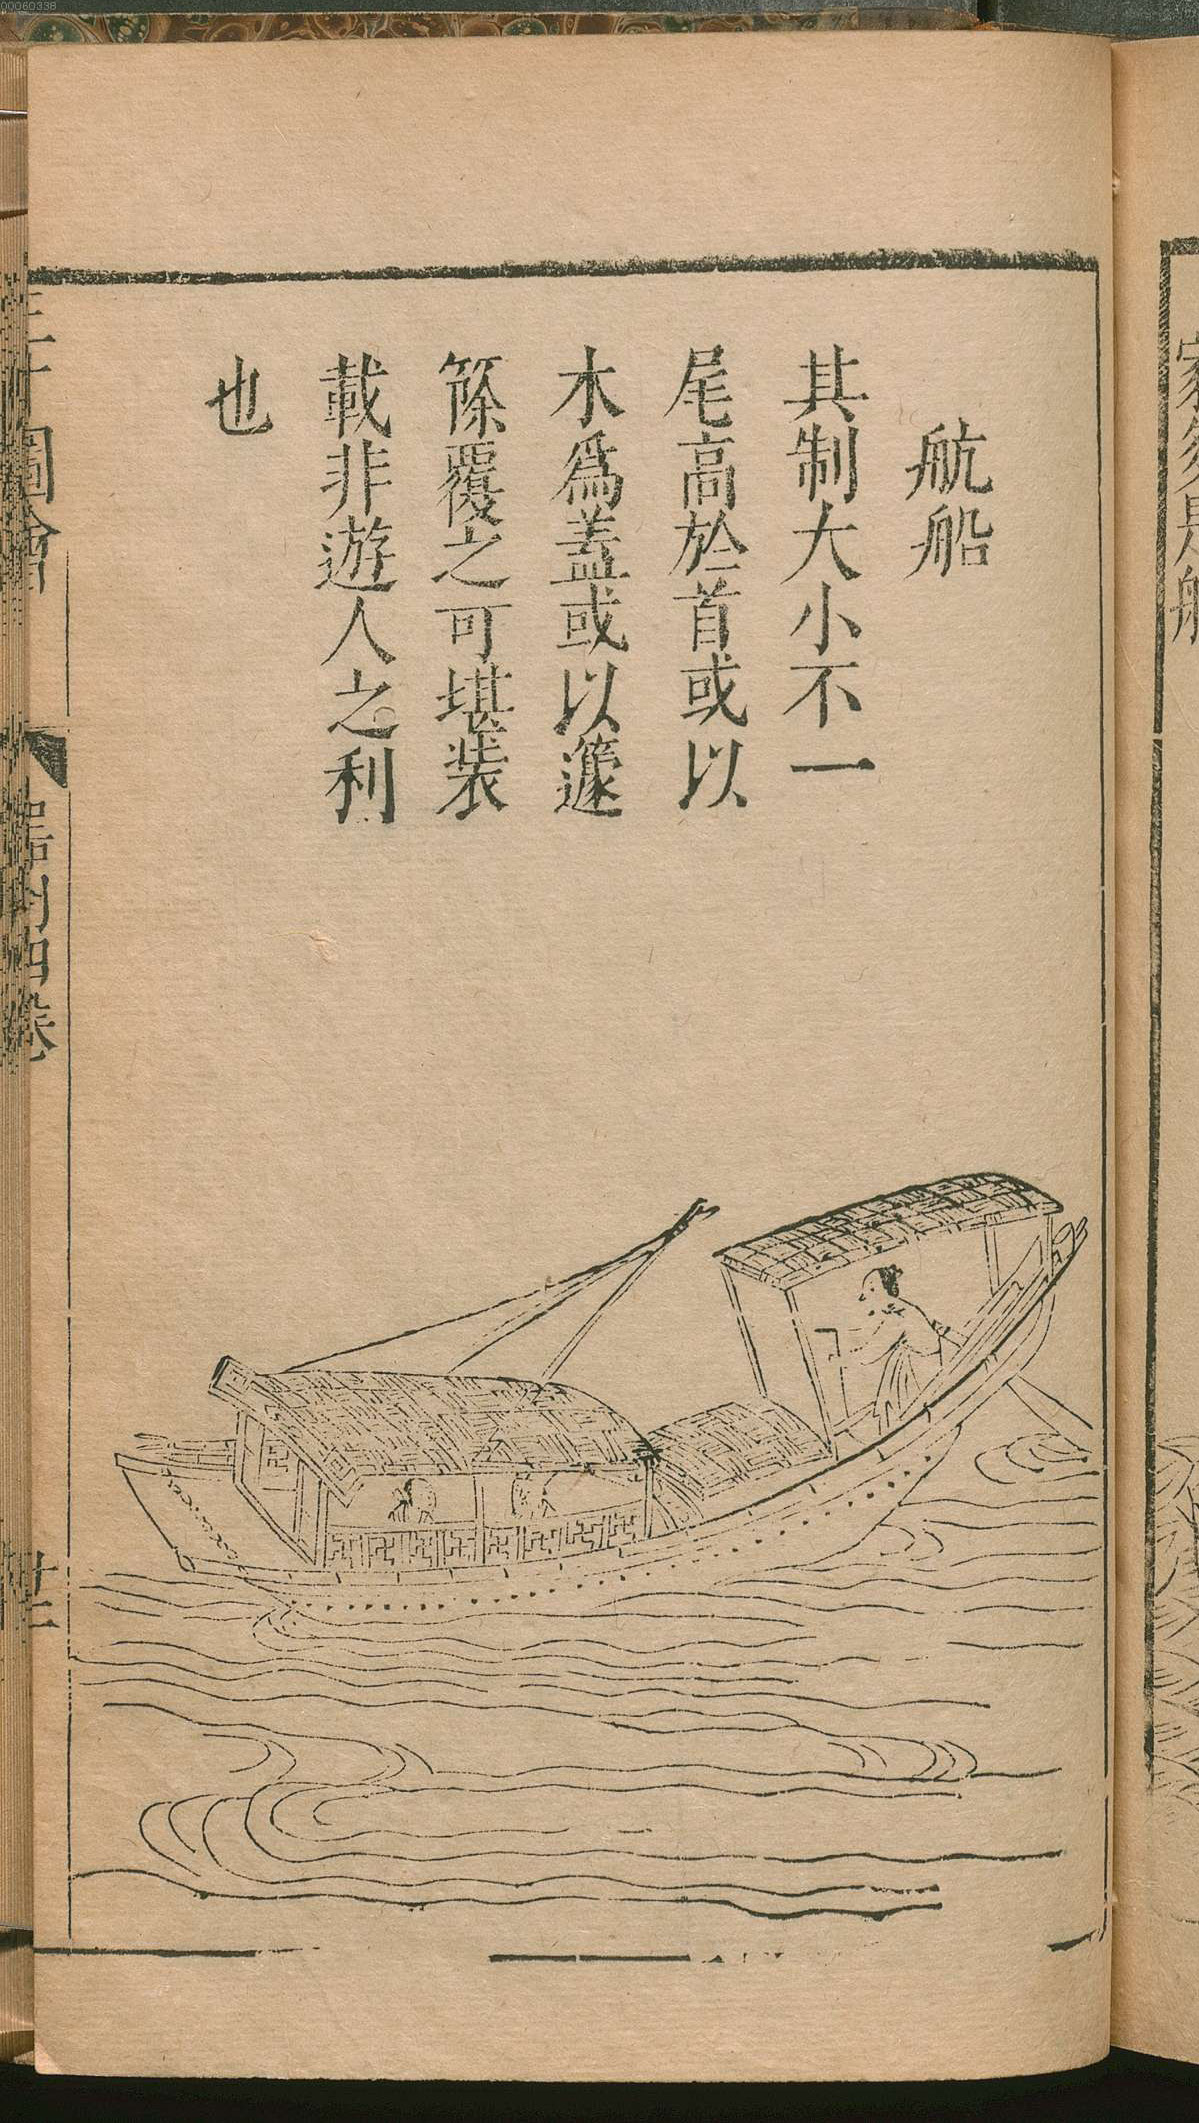 航船
其制大小不一
尾高於首或以
木爲盖或以籧
篨覆之可堪装
載非遊人之利
也
圖會
器用四卷
00060338